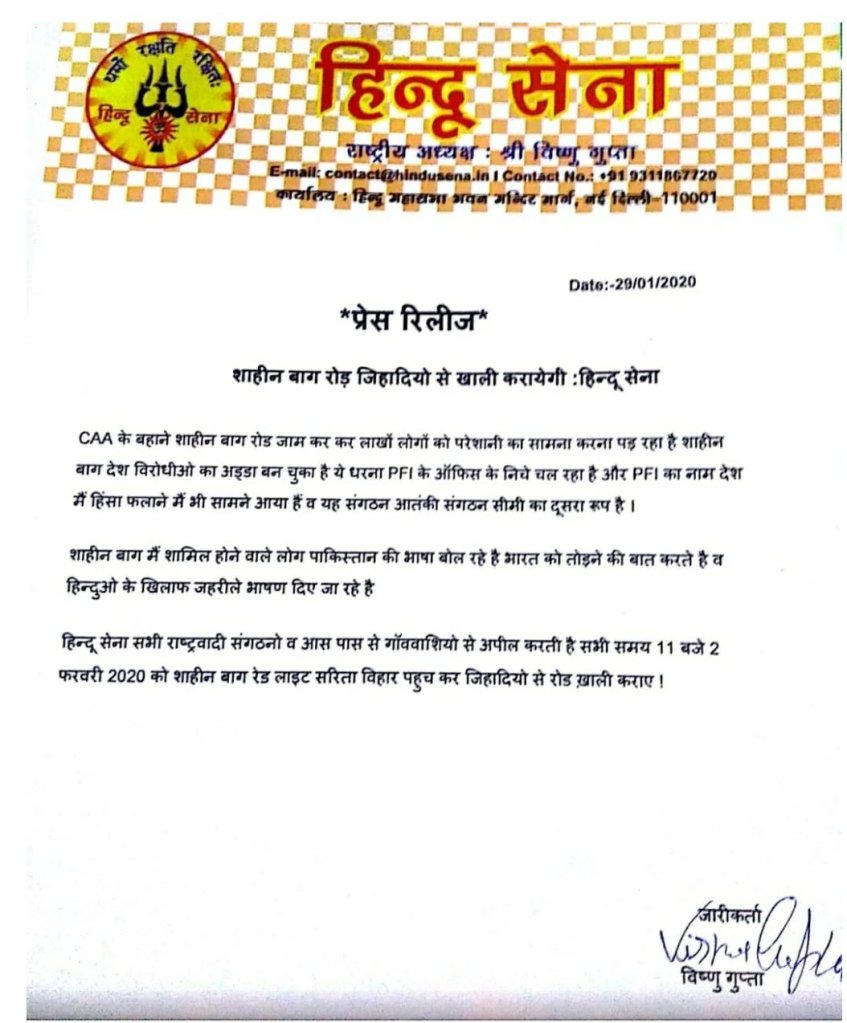 धर्मो रक्षति रक्षितः
हिन्दू सेना
हिन्दू सेना
राष्ट्रीय अध्यक्ष : श्री विष्णु गुप्ता
E-mail: contact@hindusena.in I Contact No.: +91 9311867720
कार्यालय : हिन्दू महासभा भवन मन्दिर मार्ग, नई दिल्ली-110001
Date:-29/01/2020
*प्रेस रिलीज*
शाहीन बाग रोड़ जिहादियो से खाली करायेगी :हिन्दू सेना
CAA के बहाने शाहीन बाग रोड जाम कर कर लाखों लोगों को परेशानी का सामना करना पड़ रहा है शाहीन
बाग देश विरोधीओ का अड्डा बन चुका है ये धरना PFI के ऑफिस के निचे चल रहा है और PFI का नाम देश
मैं हिंसा फलाने मैं भी सामने आया हैं व यह संगठन आतंकी संगठन सीमी का दूसरा रूप है ।
शाहीन बाग मैं शामिल होने वाले लोग पाकिस्तान की भाषा बोल रहे है भारत को तोड़ने की बात करते है व
हिन्दुओ के खिलाफ जहरीले भाषण दिए जा रहे है
हिन्दू सेना सभी राष्ट्रवादी संगठनो व आस पास से गॉववाशियो से अपील करती है सभी समय 11 बजे 2
फरवरी 2020 को शाहीन बाग रेड लाइट सरिता विहार पहुच कर जिहादियो से रोड ख़ाली कराए !
जारीकर्ता
Vishnu Gupta
विष्णु गुप्ता